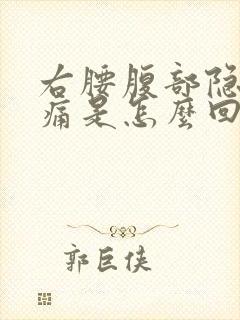 右腰腹部隐
痛是怎麽回
郭巨侠